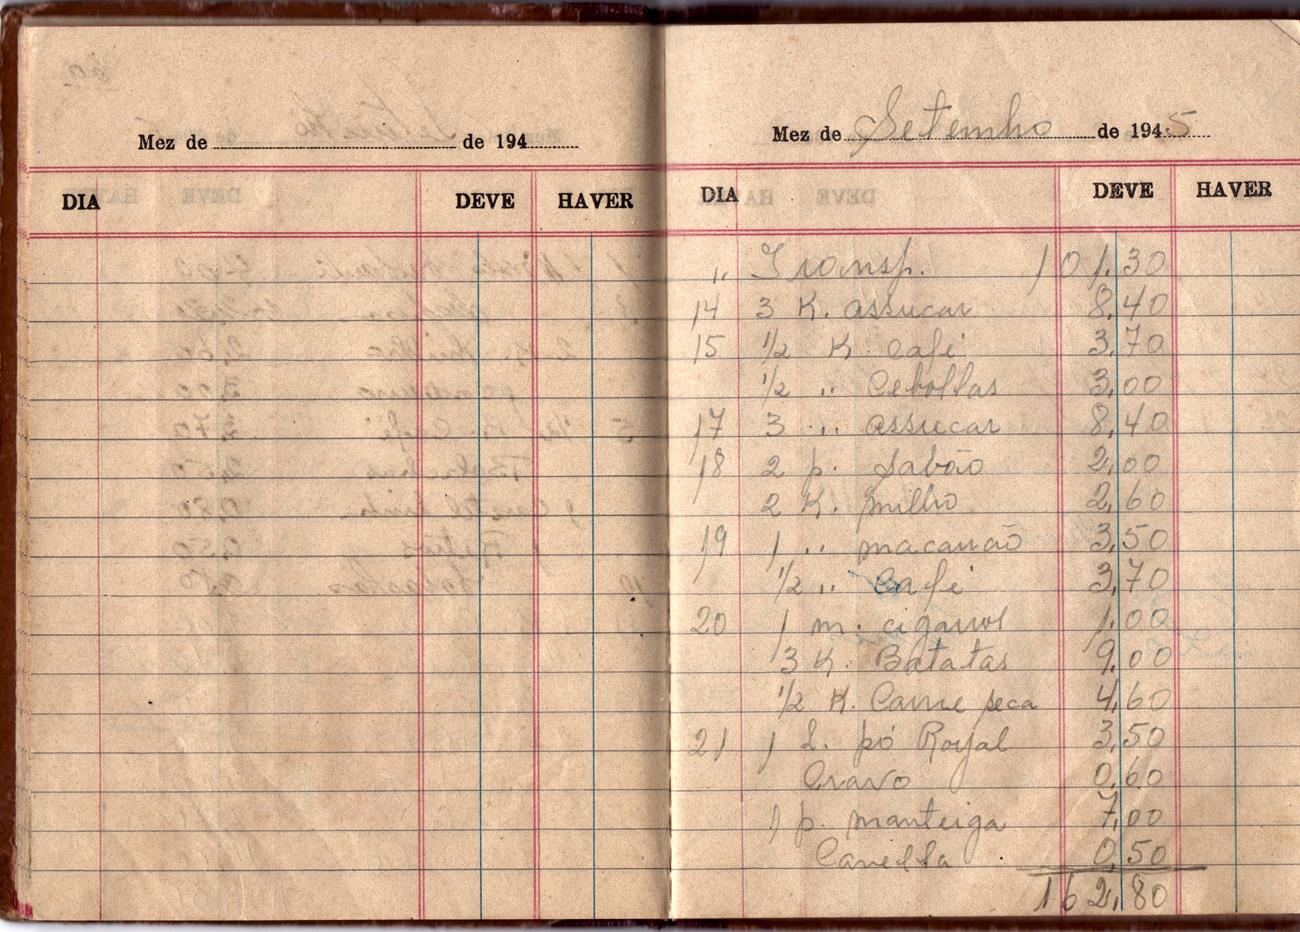 Mez de de 194
DIA DEVE HAVER
Mez de Setembro de 194.5
DIA DEVE HAVER
" Transp. 101,30
14 3 K. assucar 8,40
15 1/2 K. Café 3,70
1/2 " Cebollas 3,00
17 3 " assucar 8,40
18 2 p. Sabão 2,00
2 K. milho 2,60
19 1 " macarrão 3,50
1/2 " Café 3,70
20 1 m. cigarros 1,00
3 K. Batatas 9,00
1/2 K. Carne seca 4,60
21 1 L. pó Royal 3,50
Cravo 0,60
1 p. manteiga 7,00
Canella 0,50
162,80